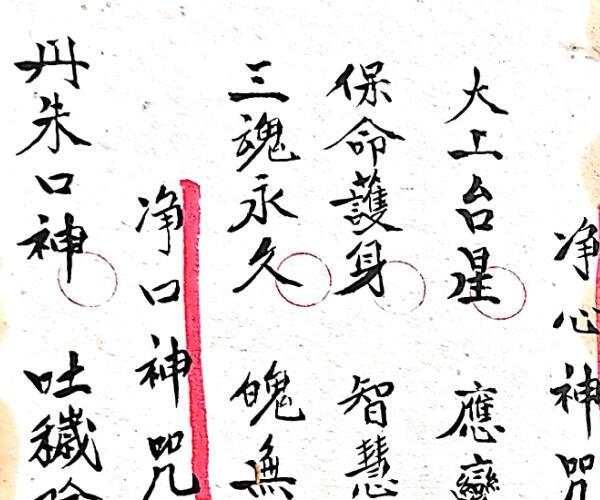 净心神咒
大上台星 應變
保命護身 智慧
三魂永久 魄無
净口神咒
丹朱口神 吐穢